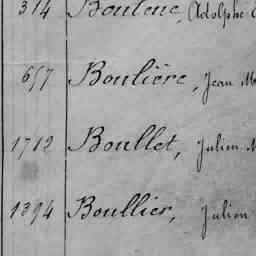 314 Bouteuc, Adolphe
657 Boulière, Jean M
1712 Boullet, Julien M
1394 Boullier, Julien